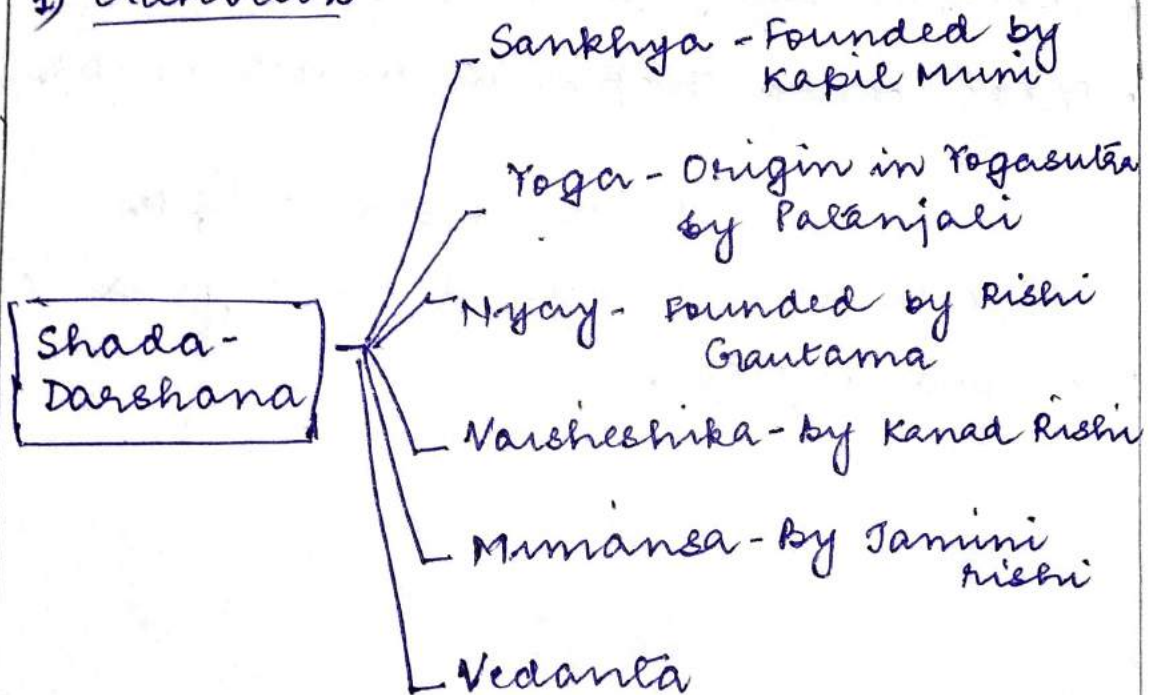 1)
Sankhya - Founded by
Kapil Muni
Yoga - Origin in Yogasutra
by Patanjali
Nyay - Founded by Rishi
Gautama
Shada-
Darshana
Vaisheshika - by Kanad Rishi
Mimansa - By Jamini
rishi
Vedanta